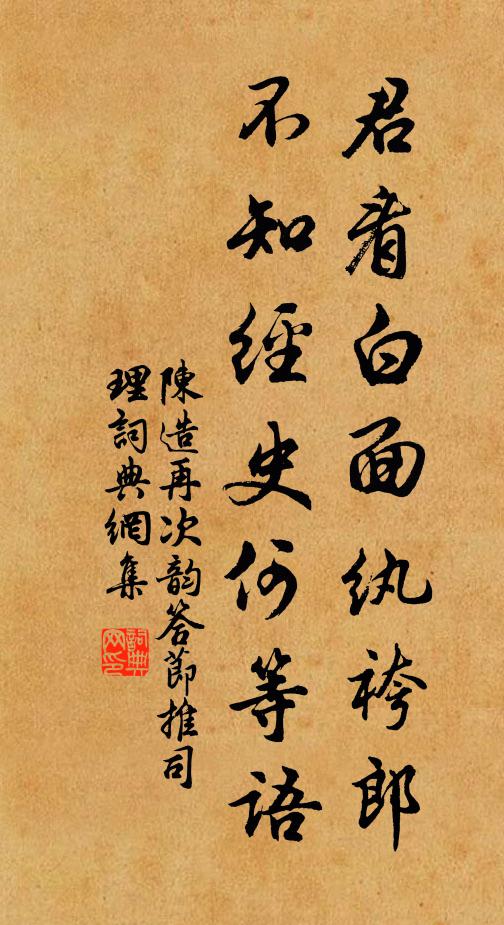 君看白面纨袴郎
不知經史何等語
陳造再次韵答節推司
理詞典網集
詞典
网印